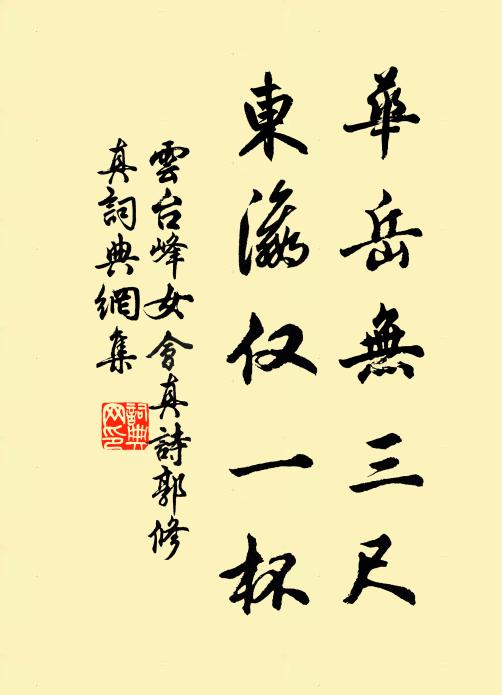 華岳無三尺
東瀛仅一杯
雲台峰女會真詩郭修
真詞典網集
詞典网印